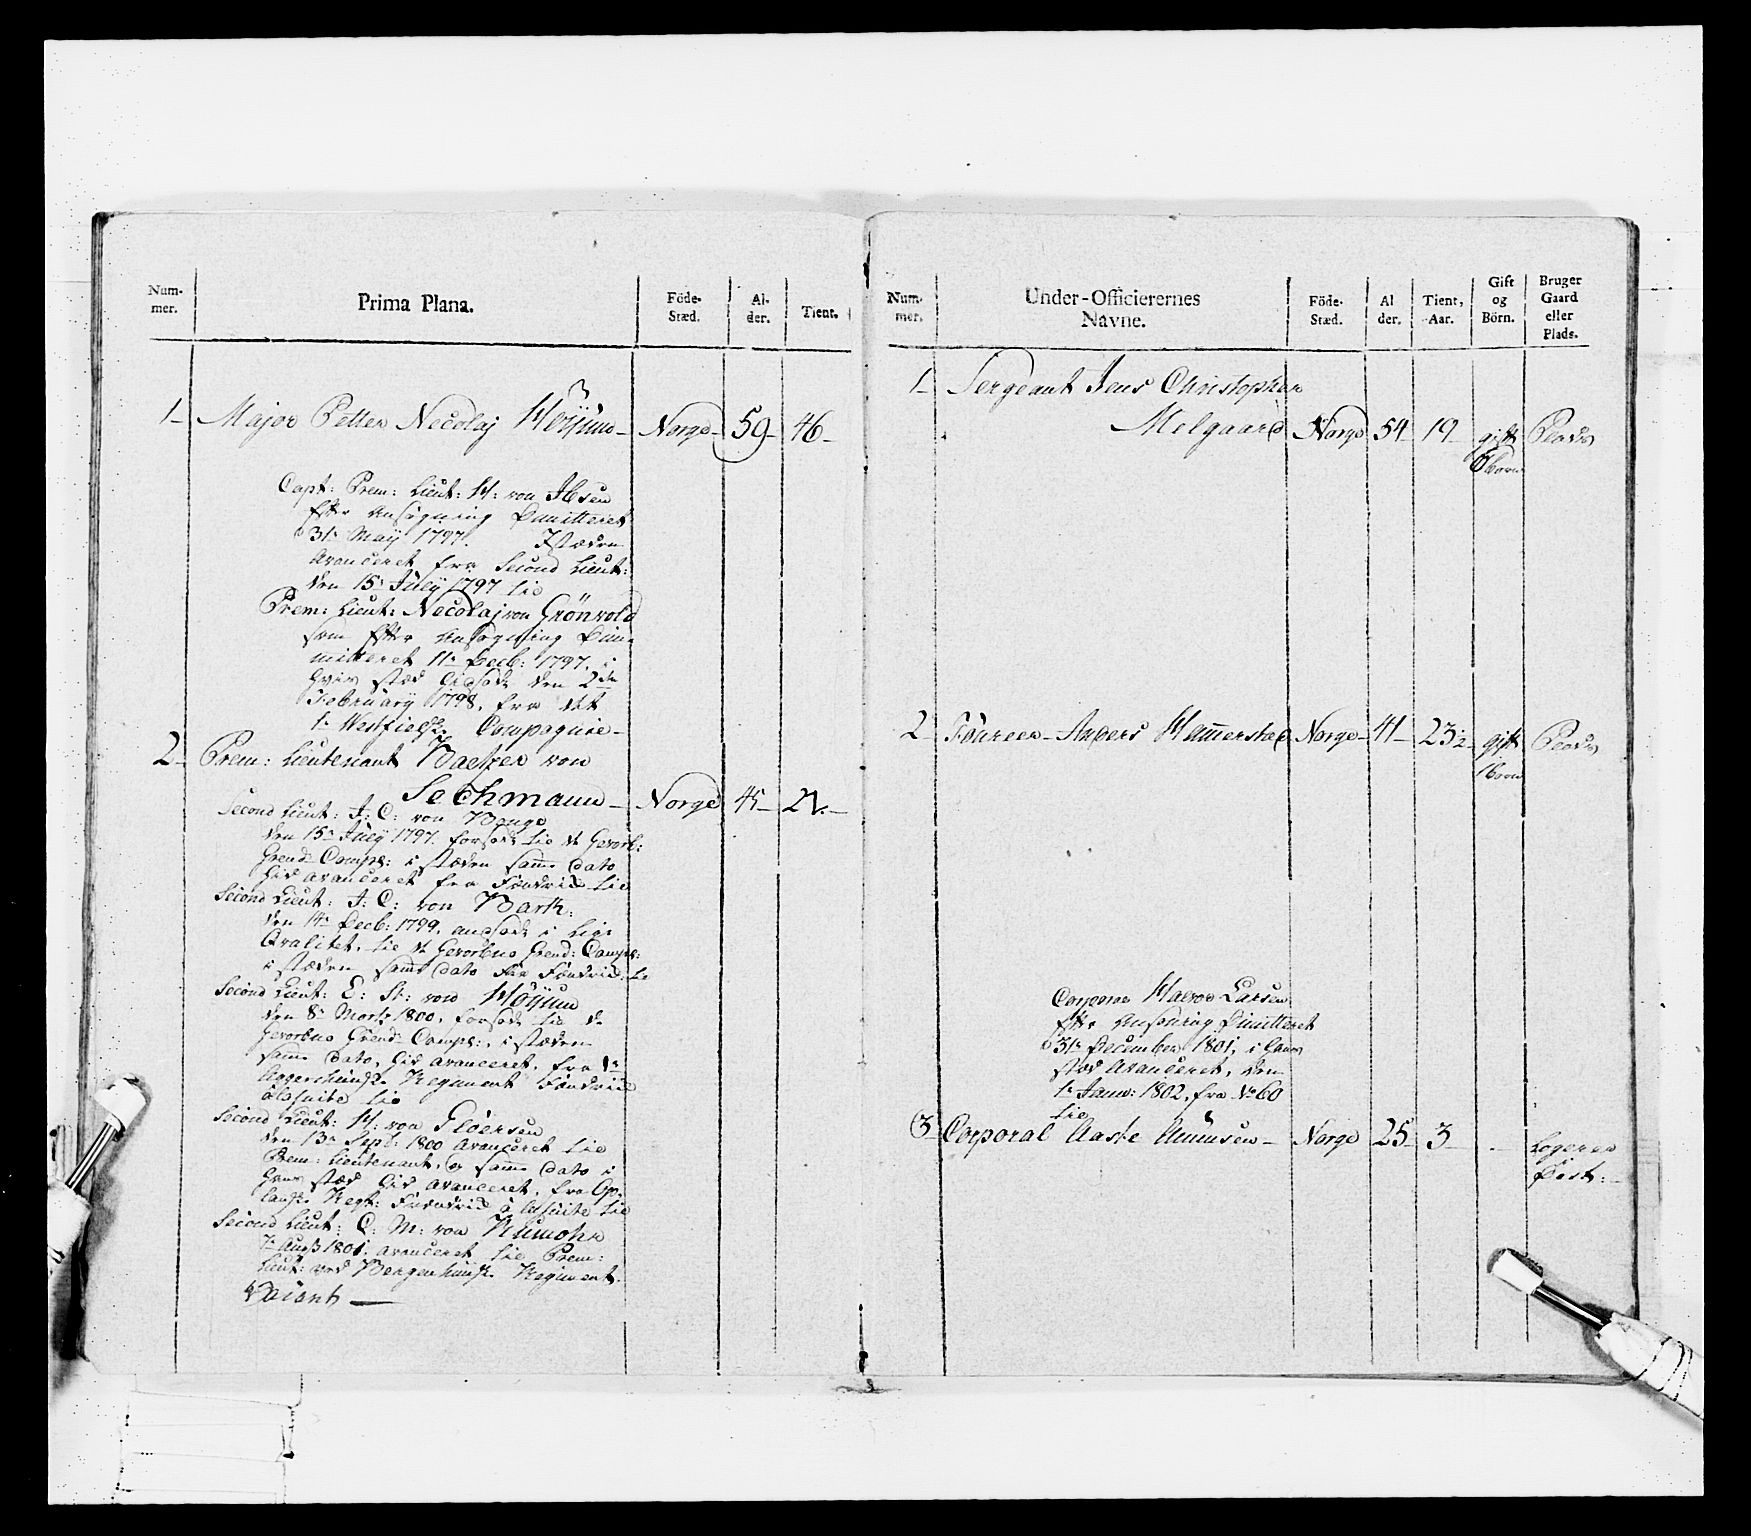 Num-
mer.
Prima Plana.
Föde-
Stæd.
Al-
der.
Tient.
1 Major Petter Necolaj Höyum Norge 59 46
Capt: Prem: Lieut: H: von Ibsen
Efter Ansögning Dimitteret
31te Maij 1797. I stæden
Avanceret fra Second Lieut:
den 15de Julij 1797 til
Prem: Lieut: Necolaj von Grönvold
som Efter Ansögning Dim-
mitteret 11te Decb: 1797. i
hvis stæd bleven den 2den
February 1798. fra det
1te Westfielske Compagnie
2 Prem: Lieutenant von
Sechmann Norge 45 21
Second Lieut: J: C: von
den 15de Julij 1797 forsadt til de Gevorb:
Grend: Comp: i stæden samme dato
hid avanceret fra Fændrich til
Second Lieut: J: C: von Bark:
den 14de Decb: 1799. ansadt i lige
Qvalitet, til de Gevorbne Grend: Comp:
i stæden samme dato fra Fændrich til
Second Lieut: E: St: von Höyum
den 8de Martz 1800. forsadt til de
Gevorbne Grend: Comp:, i stæden
samme dato, hid avanceret, fra 1te
Aggershuusiske Regiment Fændrich
a la suite til
Second Lieut: H: von Gloersen
den 13de Sept: 1800 avanceret til
Prem: Lieutenant, og samme dato i
hans stæd hid avanceret, fra Op-
landske Regt: Fændrich a la suite til
Second Lieut: C: M: von Rumohr
7de Aug: 1801. avanceret til Prem:
Lieut: ved Bergenhuusiske Regiment.
Vacant
Num-
mer.
Under-Officierernes
Navne.
Föde-
Stæd.
Al
der.
Tient,
Aar.
Gift
og
Börn.
Bruger
Gaard
eller
Plads.
1 Sergeant Jens Christopher
Melgaard Norge 54 19 gift Plads
6 börn
2 Foureer Anders Hammerstad Norge 41 23½ gift Plads
1 barn
Corporal Halvor Larsen
Efter Ansögning Dimitteret
31te December 1801, i hans
stæd Avanceret, den
1te Janu: 1802, fra No 60
til
3 Corporal Aaste Amunsen Norge 25 3 - Logerer
Dist: